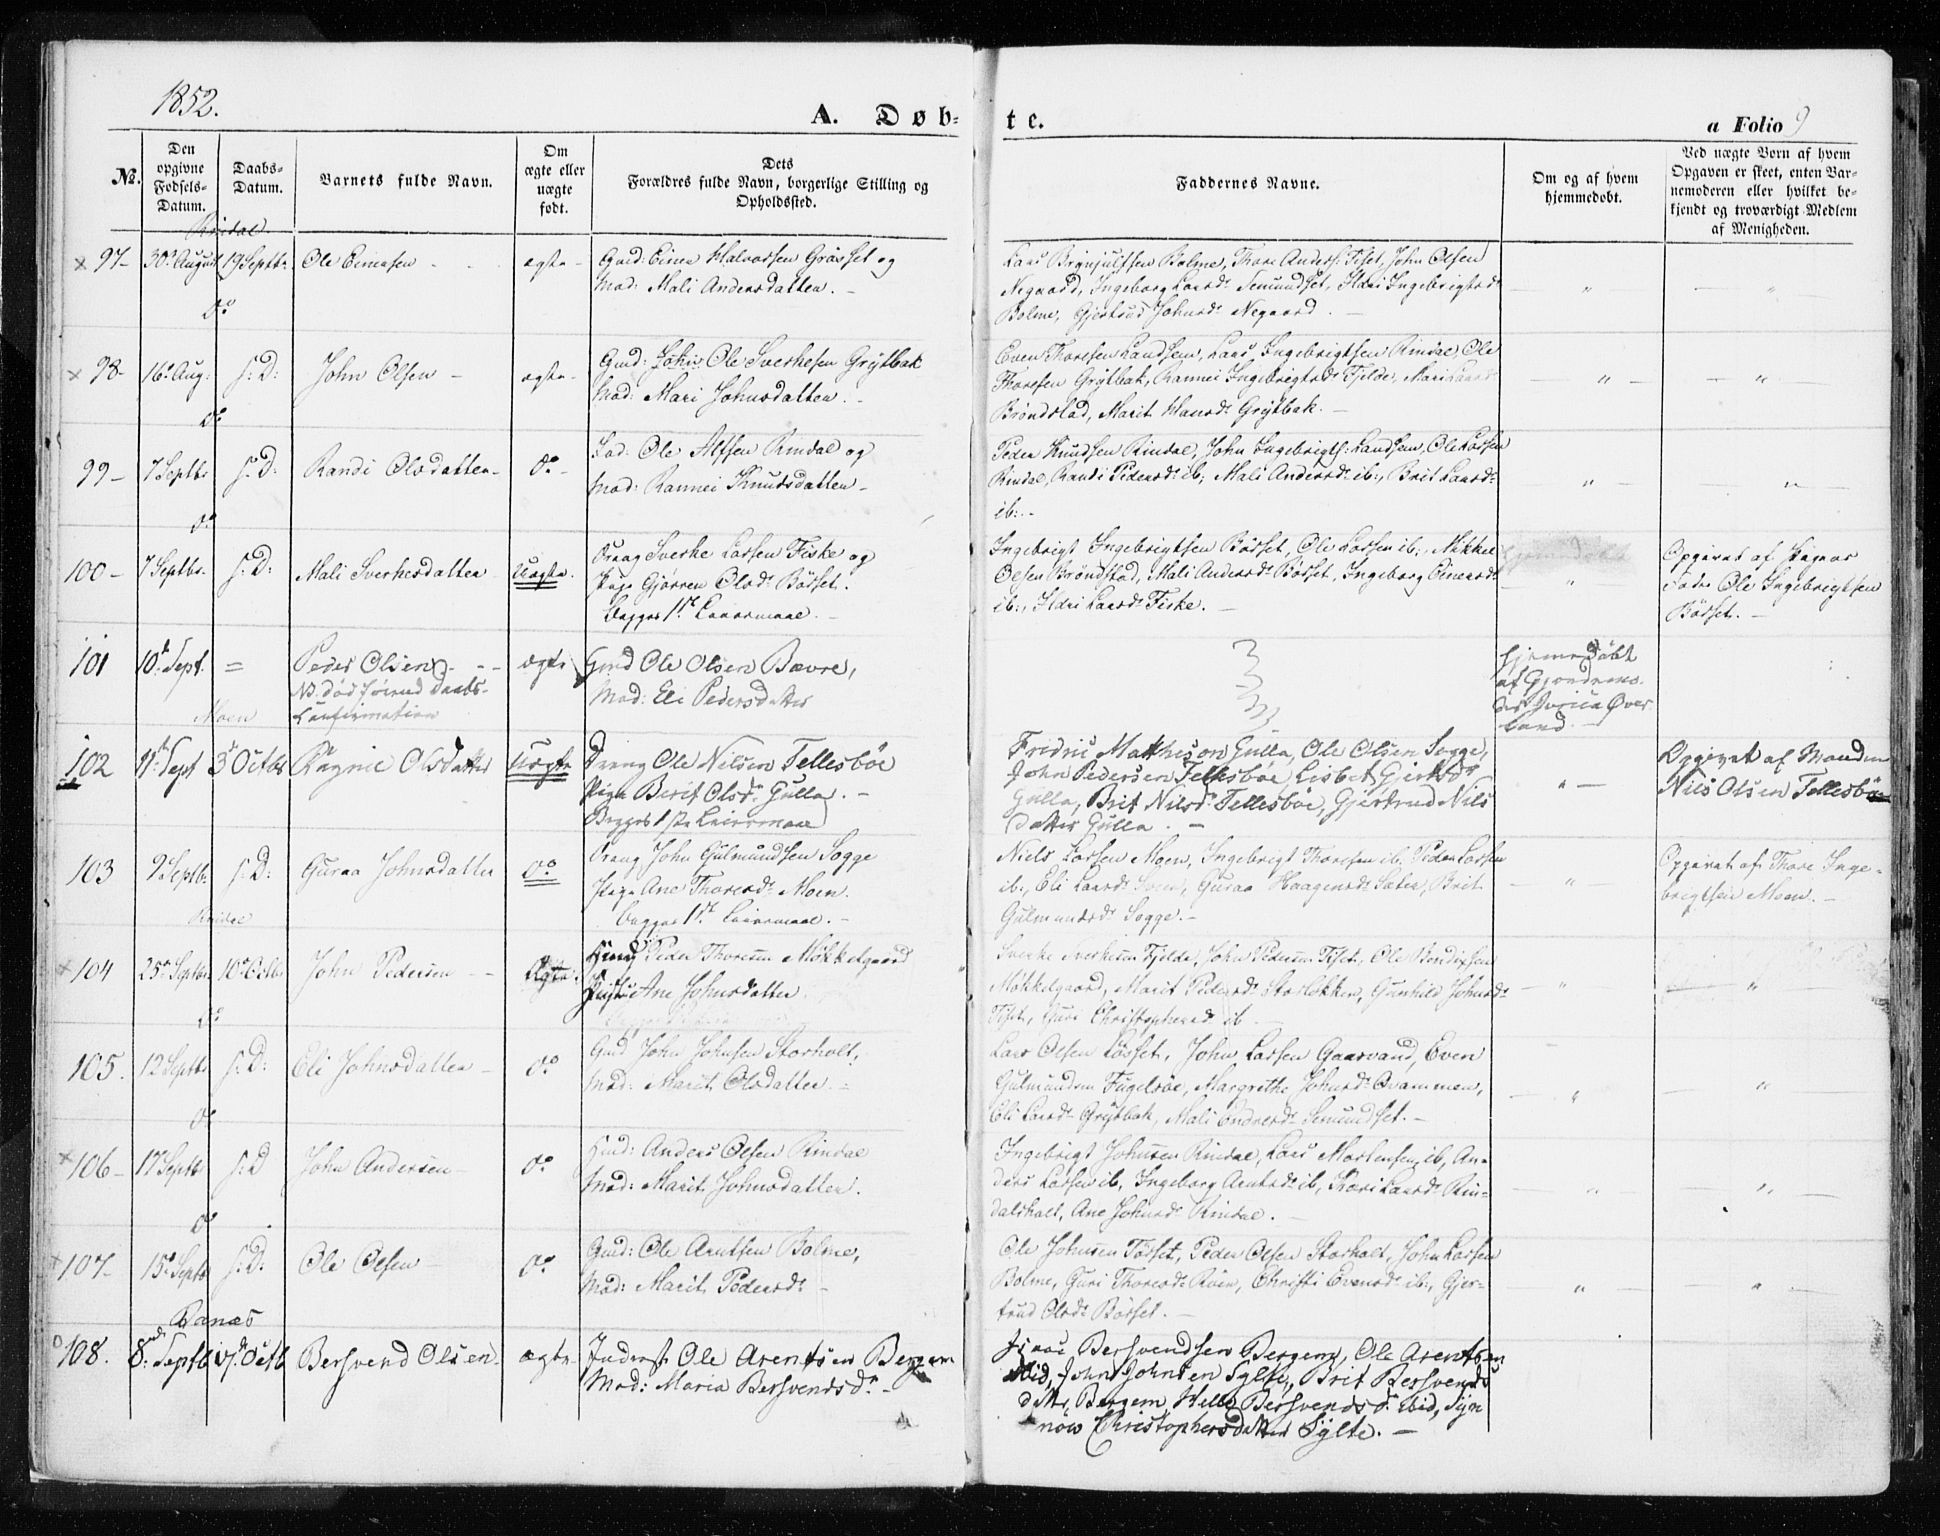 1852.
A. Døb-
te.
a Folio 9
No.
Den opgivne Fødsels-Datum.
Daabs-Datum.
Barnets fulde Navn.
Om ægte eller uægte født.
Dets Forældres fulde Navn, borgerlige Stilling og Opholdssted.
Faddernes Navne.
Om og af hvem hjemmedøbt.
Ved uægte Børn af hvem Opgaven er skeet, enten Barnemoderen eller hvilket bekjendt og troværdigt Medlem af Menigheden.
Rindal.
97- 30te August 19 Septbr Ole Einersen ægte- Gmd: Einer Halvorsen Grøset og
Mod: Mali Andersdatter. -
Lars Brynjulfsen Bolme, Thore Anders: Fiset, John Olsen
Negaard, Ingeborg Larsdr Semundset, Ildri Ingebrigtsdr
Bolme, Gjertrud Johnsdr Negaard. -
do
98- 16de Aug: s: D: John Olsen - ægte- Gmd: Ole Sverkesen Grytbak
Mod: Mari Johnsdatter. -
Even Thoresen Landsem, Lars Ingebrigtsen Rindal, Ole
Thoresen Grytbak, Rannei Ingebrigtsdr Fjelde, Mari Larsdr
Brøndstad, Marit Hansdr Grytbak. -
do
99- 7 Septbr s: D: Randi Olsdatter- do- Ole Alfsen Rindal og
Mod: Rannei Knudsdatter-
Peder Knudsen Rindal, John Ingebrigts: Landsem, Ole Larsen
Rindal, Randi Pedersdr ib:, Mali Andersdr ib:, Brit Larsdr
ib: -
do
100- 7 Septbr. s: D: Mali Sverkesdatter Uægte. Drang Sverke Larsen Fiske og
Pige Gjørren Olsdr Børset.
Begges 1ste Leiermaal. -
Ingebrigt Ingebrigtsen Børset, Ole Larsen ib:, Mikkel
Olsen Brøndstad, Mali Andersdr Børset, Ingeborg Einersdr
ib:, Ildri Larsdr Fiske. -
Opgivet af Pigens
Fader Ole Ingebrigtsen
Børset. -
101 10de Sept. = Peder Olsen - - ægte Gmd Ole Olsen Bævre,
Mod: Eli Pedersdatter
NB. død førend Daabs-
Confirmation
Hjemmedøbt
af Gjordemo-
der Øver
land
Moen
102 11te Sept 3die Octbr Ragnil Olsdatter Uægte Drang Ole Nilsen Tellesbøe
Pige Berit Olsdr Gulla. -
Begges 1ste Leiermaal
Fredric Mathison Gulla, Ole Olsen Sogge,
John Pedersen Tellesbøe, Lisbet Gjertsdr
Gulla, Brit Nilsdr Tellesbøe, Gjertrud Nils
datter Gulla. -
Opgivet af Manden
Nils Olsen Tellesbøe
103 9 Septbr. s: D: Guraa Johnsdatter do Drang John Gulmundsen Sogge
Pige Ane Thoresdr Moen.
begges 1ste Leiermaal. -
Niels Larsen Moen, Ingebrigt Thoresen ib, Peder Larsen
ib., Eli Larsdr, Guraa Haagensdr Sæter, Brit
Gulmundsdr Sogge. -
Opgivet af Thore Inge-
brigtsen Moen. -
Rindal
104 25de Septbr 10de Octbr John Pedersen - - Ægte. Peder Thoresen Møkkelgaard
Ane Johnsdatter
Sverke Sverkesen Fjelde, John Pedersen Fiset, Ole Bendixsen
Møkkelgaard, Marit Pedersdr Storløkken, Gunhild Johnsdr
Fiset, Guri Christophersdr ib
do
105. 12 Septbr s: D: Eli Johnsdatter - do Gmd John Johnsen Storholt,
Mod: Marit Olsdatter -
Lars Olsen Løset, John Larsen Gaasvand, Even
Gulmundsen Fugelsøe, Margrethe Johnsdr Qvammen,
Eli Larsdr Grytbak, Mali Endresdr Semundset. -
do
106- 17 Septbr s: D John Andersen- do Anders Olsen Rindal
Mod: Marit Johnsdatter.
Ingebrigt Johnsen Rindal, Lars Mortensen ib, An-
ders Larsen ib, Ingeborg Arntsdr ib, Kari Larsdr Rin-
dalsholt, Ane Johnsdr Rindal. -
do
107- 15de Septbr s: D: Ole Olsen - do Gmd: Ole Arntsen Bolme,
Mod: Marit Pedersdr -
Ole Johnsen Tørset, Peder Olsen Storholt, John Larsen
Bolme, Guri Thoresdr Røen, Christi Evensdr ib:, Gjer-
trud Olsdr Børset. -
Ranes
108. 8de Septb 17de Octb Bersvend Olsen. ægte Inderst Ole Arentsen Bergem
Mod: Maria Bersvendsdr -
Bersvendsen Bergem, Ole Arentsen
ibid, John Johnsen Sylte, Brit Bersvends
datter Bergem, Bersvendsdr Ibid, Syn
nøv Christophersdatter Sylte. -